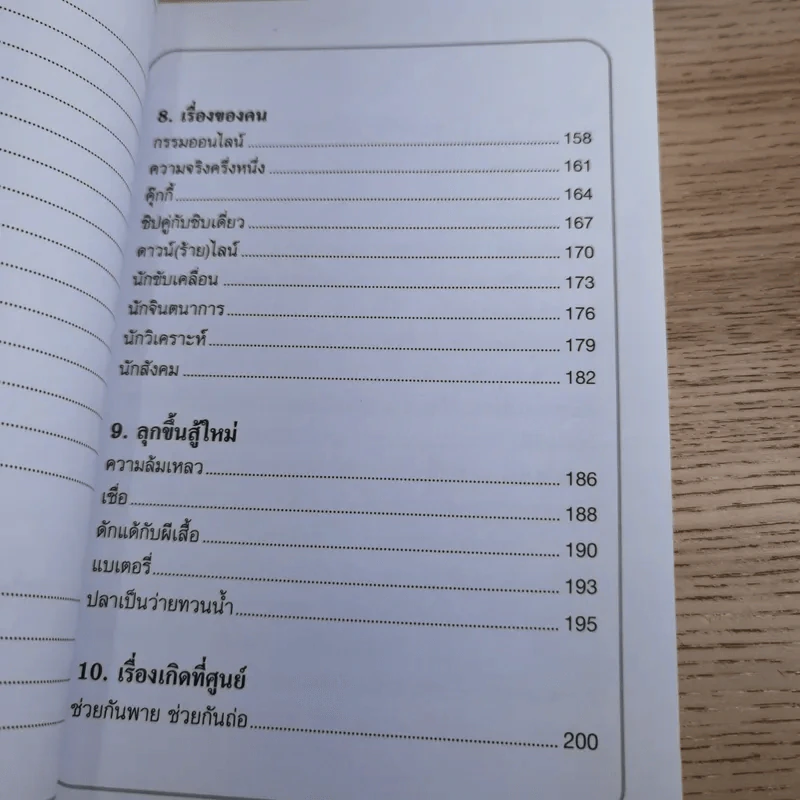 8. เรื่องของคน
กรรมออนไลน์ 158
ความจริงครึ่งหนึ่ง 161
คุ๊กกี้ 164
ซิปคู่กับซิบเดี่ยว 167
ดาวน์(ร้าย)ไลน์ 170
นักขับเคลื่อน 173
นักจินตนาการ 176
นักวิเคราะห์ 179
นักสังคม 182
9. ลุกขึ้นสู้ใหม่
ความล้มเหลว 186
เชื่อ 188
ดักแด้กับผีเสื้อ 190
แบเตอรี่ 193
ปลาเป็นว่ายทวนน้ำ 195
10. เรื่องเกิดที่ศูนย์
ช่วยกันพาย ช่วยกันถ่อ 200